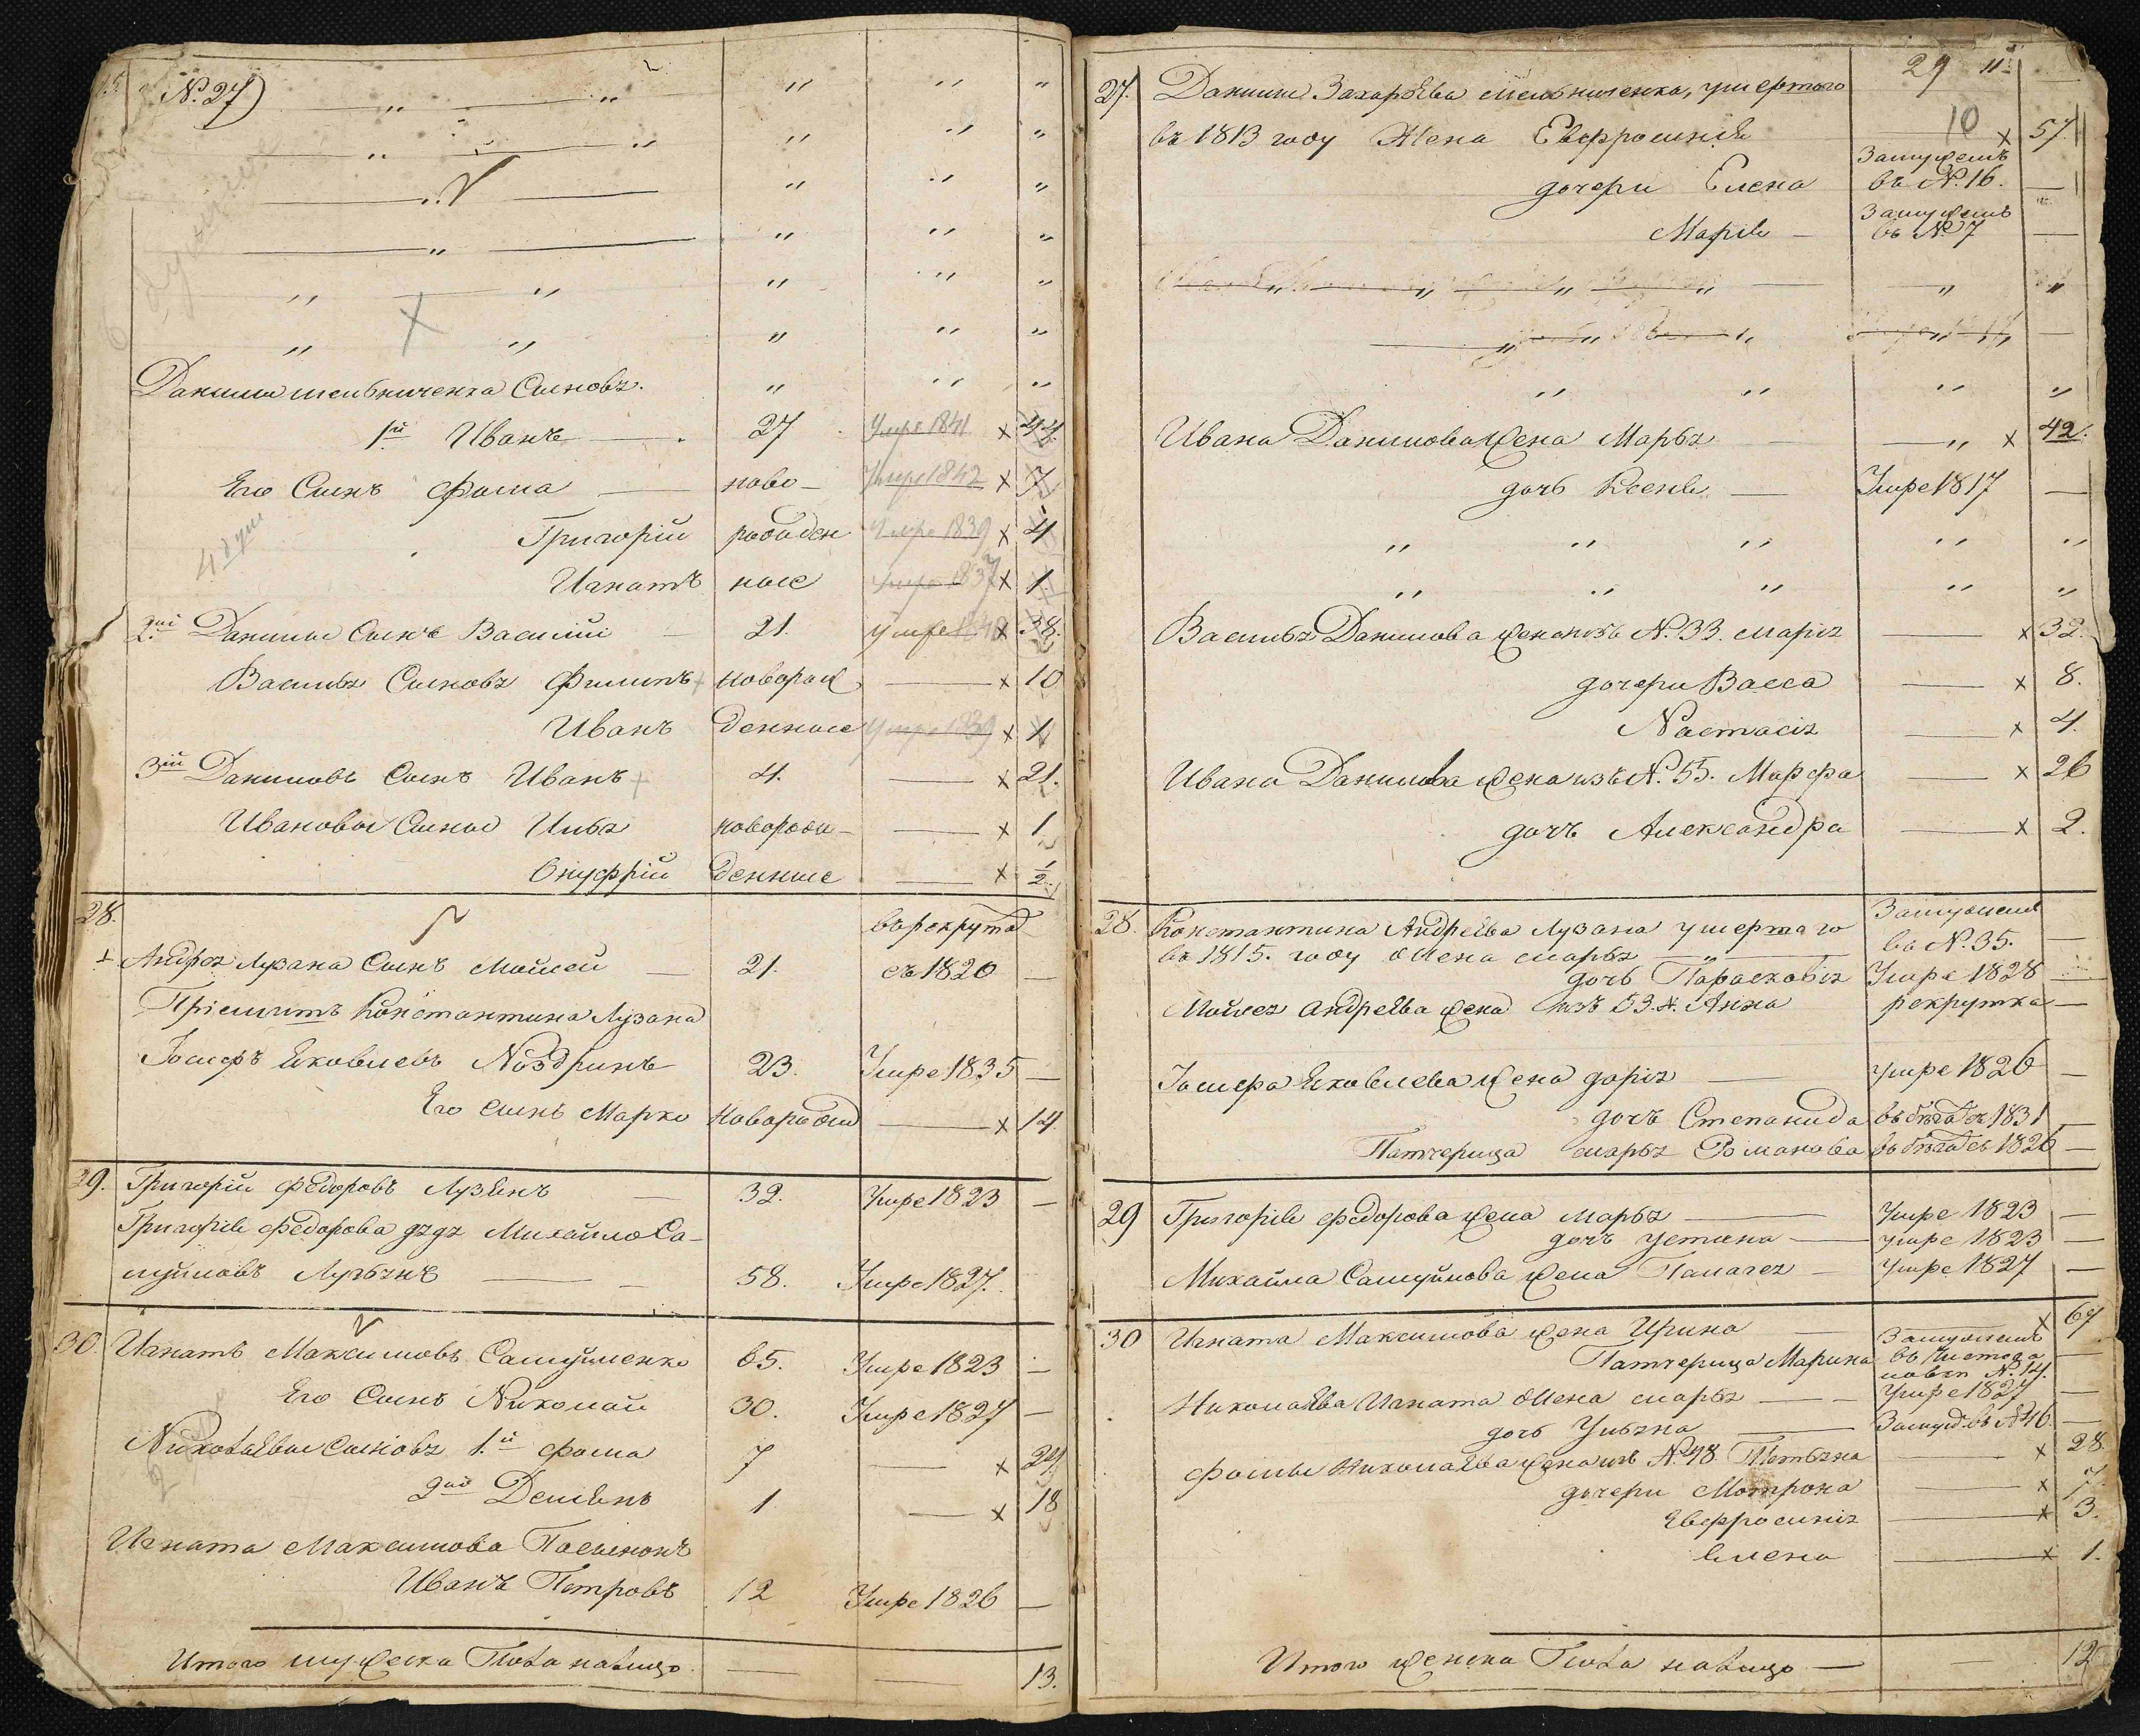 № 27)
Данила мельниченка Сыновъя
1й Иванъ 27 Умре 1841 44
Его Сынъ Фома ново- Умре 1842 7
Григорій рожден Умре 1839 4
Игнатъ ные Умре 1837 1
2ий Данилы Сынъ Василій 21. Умре 1840 38.
Василья Сыновъя Филипъ новорож 10
Иванъ денные Умре 1839 1
3ий Даниловъ Сынъ Иванъ 4. 21.
Ивановы Сыны Илья новорож- 1
Онуфрій денные 1/2
28.
Андрея Лузана Сынъ Мойсей 21. въ рекрутах съ 1820
Пріемышъ Константина Лузана
Іосифъ Яковлевъ Ноздринъ 23. Умре 1835
Его сынъ Марко Новорожд 14
29. Григорій Федоровъ Лузянъ 32. Умре 1823
Григорія Федорова дядя Михайло Са-
муйловъ 58. Умре 1827.
30 Игнатъ Максимовъ Самуйленко 65. Умре 1823
Его Сынъ Николай 30. Умре 1827
Николаевы Сыновъя 1.й Фома 7 24
2ой Демянъ 1 18
Игната Максимова Пасынокъ
Иванъ Петровъ 12 Умре 1826
Итого мужеска Пола налицо 13.
29 11
10
27. Данилы Захарьева Мельниченка, умертаго
въ 1813 году Жена Евфросинія 57
дочери Елена Замужемъ въ № 16.
Марія Замужемъ въ № 7
Ивана Данилова жена Марья 42.
дочь Ксенія Умре 1817
Василья Данилова жена изъ № 33. марія 32.
дочери Васса 8.
Настасія 4.
Ивана Данилова жена изъ № 55. Марфа 26
дочь Александра 2.
28. Константина Андреева Лузана умертаго Замужемъ
въ 1815. году Жена марья въ № 35.
дочь Парасковія Умре 1828
Мойсея Андреева жена изъ 53. №. Анна рекрутка
Іосифа Яковлева жена дарія умре 1826
дочь Степанида въ бегах съ 1831
Патчерица марья Романова въ бегах съ 1826
29 Григорія Федорова жена марья Умре 1823
дочь Устина умре 1823
Михайла Самуйлова жена Палагея Умре 1827
30 Игната Максимова жена Ирина 67
Патчерица Марина Замужемъ въ № 14.
Николаева Игната Жена марья Умре 1827
дочь Ульяна Замуж. въ № 46.
Фомы Николаева жена изъ № 48. Татьяна 28.
дочери Мотрона 7
Евфросинія 3.
Елена 1.
Итого женска Пола налицо 12